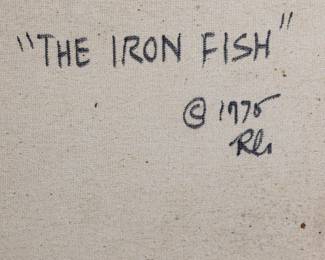 "THE IRON FISH"
© 1975